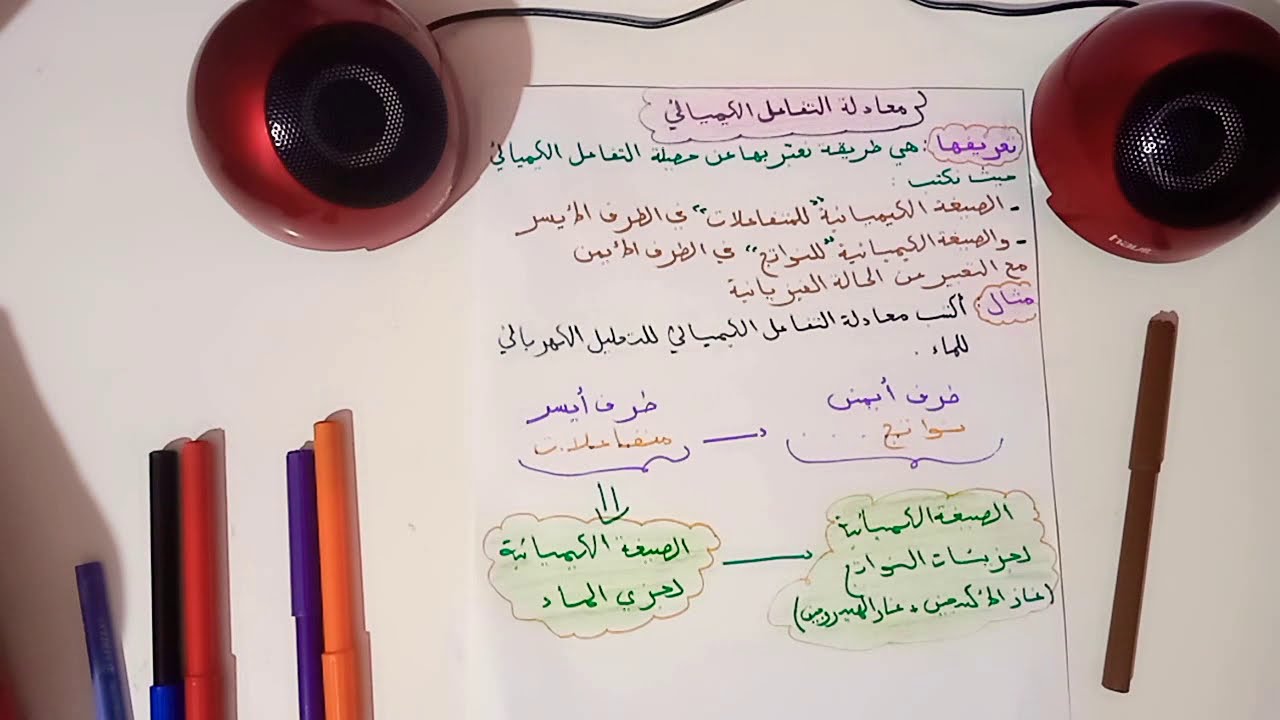 معادلة التفاعل الكيميائي
تعريفها: هي طريقة نعبّر بها عن حصيلة التفاعل الكيميائي
حيث نكتب :
- الصيغة الكيميائية "للمتفاعلات" في الطرف الأيسر
- والصيغة الكيميائية "للنواتج" في الطرف الأيمن
مع التعبير عن الحالة الفيزيائية
مثال: أكتب معادلة التفاعل الكيميائي للتحليل الكهربائي
للماء .
طرف أيمن
طرف أيسر
نواتج . . . .
متفاعلات
الصيغة الكيميائية
لجزيئات النواتج
(غاز الأكسجين + غاز الهيدروجين)
الصيغة الكيميائية
لجزيء الماء
hauk